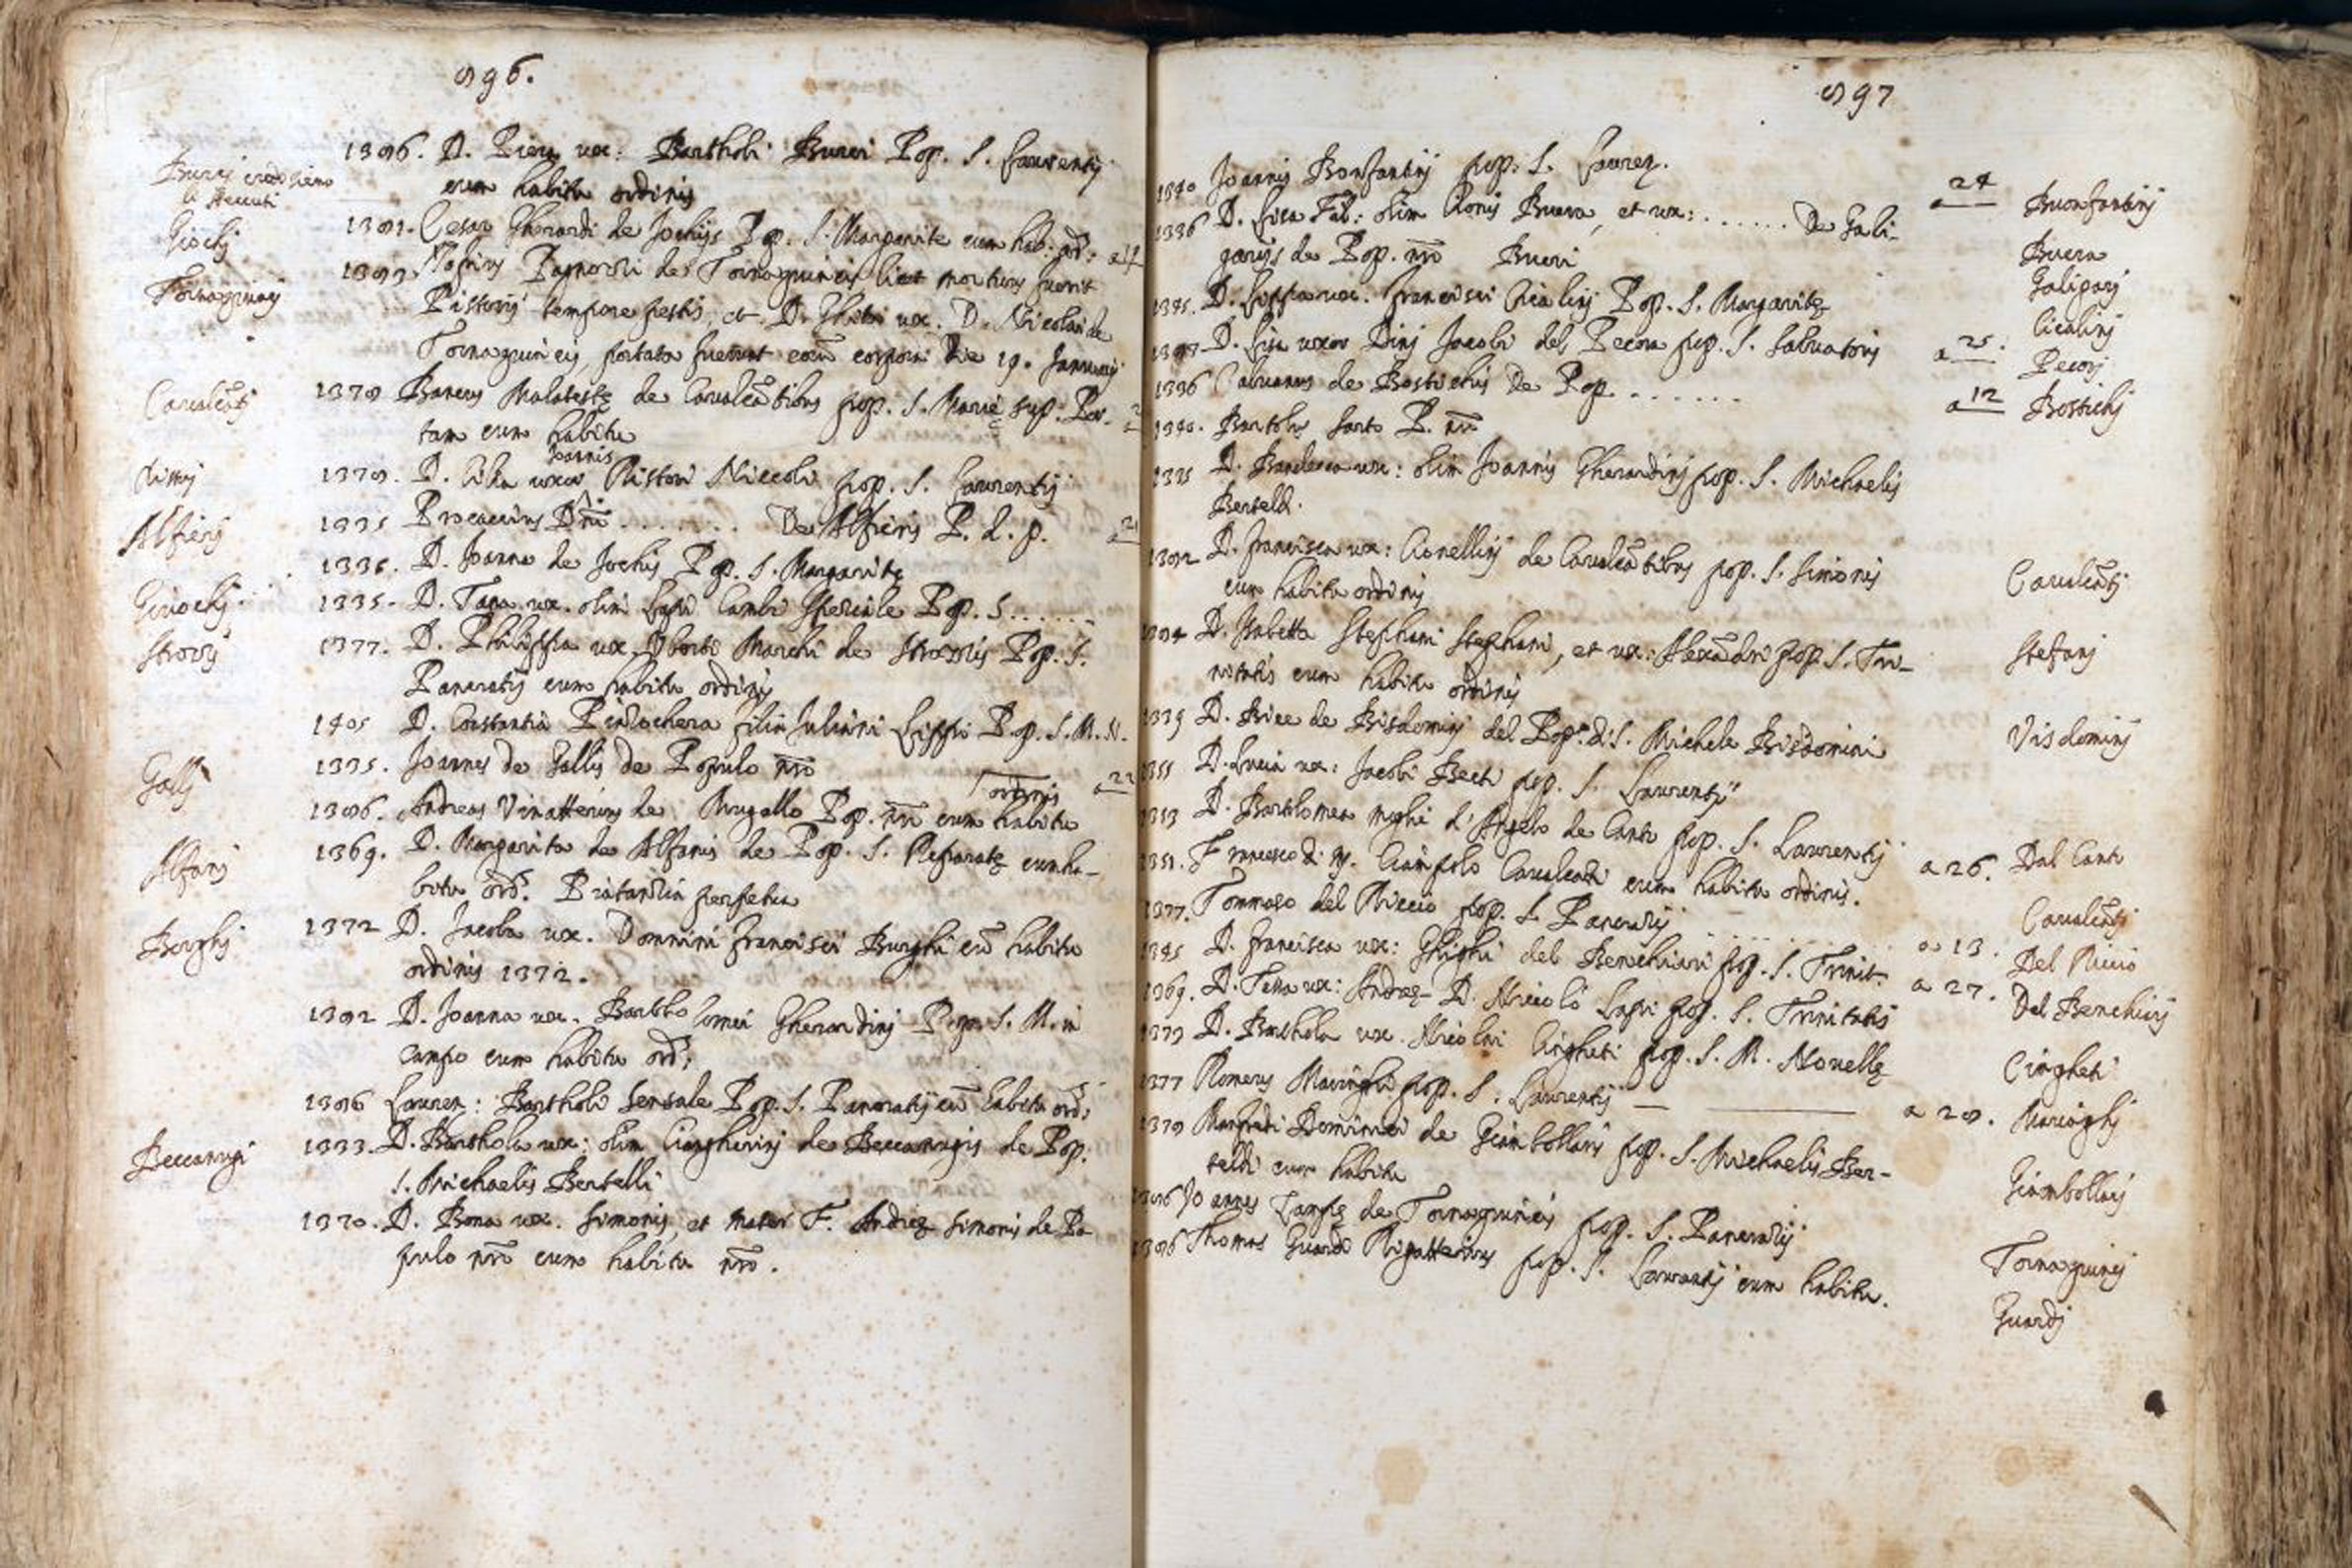 896.
Buevi
1386. D. Piera ux: Bartholi Buevi Pop. S. Laurentij
cum habitu ordinis
Giochi
1381. Cesar Gherardi de Jochijs Pop. S. Margarite cum hab: ord:
Tornaquinci
1383. Pagnozzi de Tornaquincis licet mortuus fuerit
Pistorij tempore pestis, et D. ux. D. Nicolai de
Tornaquincis, portata fuerunt eorum corpora die 19. Januarij
Cavalcãti
1378 Bancus Malateste de Cavalcãtibus pop. S. Marie sup. Por-
tam cum habitu
Joannis
1378. D. uxor Ristori Niccoli pop. S. Laurentij
Alfierij
1335 Dñi ....... De Alfieris P. d. p.
1336. D. Joanna de Jochis Pop. S. Margarite
Giuochi
1335. D. Tana ux. olim Lapi Cambi Pop. S......
Strozzi
1377. D. Philippa ux. Uberti Marchi de Strozzis Pop. S.
Pancratij cum habitu ordinis
1405 D. Costantia Pinzochera filia Juliani Lippi Pop. S. M. N.
Galli
1335. Joannes de Gallis de Populo nro
ordinis
1386. Andreas Vinatterius de Mugello Pop. nri cum habitu
Alfani
1369. D. Margarita de Alfanis de Pop. S. Reparate cum ha-
bitu ord. perpetua
Borghi
1372 D. Jacoba ux. Domnini Francisci Burghi cũ habitu
ordinis 1372.
1382 D. Joanna ux. Bartholomei Gherardini Pop. S. M. in
Campo cum habitu ord:
1386 Lauren: Bartholi Sensale Pop. S. Pancratij cũ habitu ord:
Beccanugi
1333. D. Barthola ux: olim de Beccanugis de Pop.
S. Michaelis Bertelli
1370. D. Bona ux. Simonis, et mater F. Andree Simonis de Po-
pulo nro cum habitu nro.
897
1340 Joannis Bonfantini pop: S. Lauren.
24
Buonfantini
1336 D. Lisa Fil: olim Buera, et ux: ....... De Gali-
Buera
garijs de Pop. nro Buevi
Galigari
1345. D. Lippa ux. Francisci Cicalini Pop. S. Margarite
Cicalini
D. Lisa uxor Dini Jacobi del Pecora pop. S. Salvatoris
a 25.
Pecori
1336 de Bostichis De Pop. ......
a 12
Bostichi
1340. Bartolus Sarto P. nri
1335 D. Bandecca ux: olim Joannis Gherardini pop. S. Michaelis
Berteldi.
1382 D. Francisca ux: Cionellini de Cavalcãtibus pop. S. Simonis
Cavalcãti
cum habitu ordinis
D. Isabetta Stephani Stephani, et ux: Alexãdri pop. S. Tri-
Stefani
nitatis cum habitu ordinis
1339 D. Bice de Bisdomini del Pop. di S. Michele Bisdomini
Visdomini
1355 D. Lucia ux: Jacobi Becti pop. S. Laurentij
1353 D. Bartolomea moglie d'Angelo de Canto pop. S. Laurentij
a 26.
Dal Canto
1351. Francesco di M. Cianpolo Cavalcãti cum habitu ordinis.
Cavalcãti
1377. Tommaso del Riccio pop. S. Pancratij
a 13.
Del Riccio
1345 D. Francisca ux: Ghighi del Benchiari pop. S. Trinit.
a 27.
Del Benchiari
1369. D. Tessa ux: Andree D. Niccolo Lapi pop. S. Trinitatis
1373 D. Barthola ux. Nicolai Cingheti pop. S. M. Novelle
Cingheti
1377 Romeus pop. S. Laurentij
a 28.
1378 Manfredi Dominici de Giambollari pop. S. Michaelis Ber-
Giambollari
teldi cum habitu
1386 Joannes de Tornaquincis pop. S. Pancratij
Tornaquinci
1386 Thomas Guardi Rigatterius pop. S. Laurentij cum habitu.
Guardi